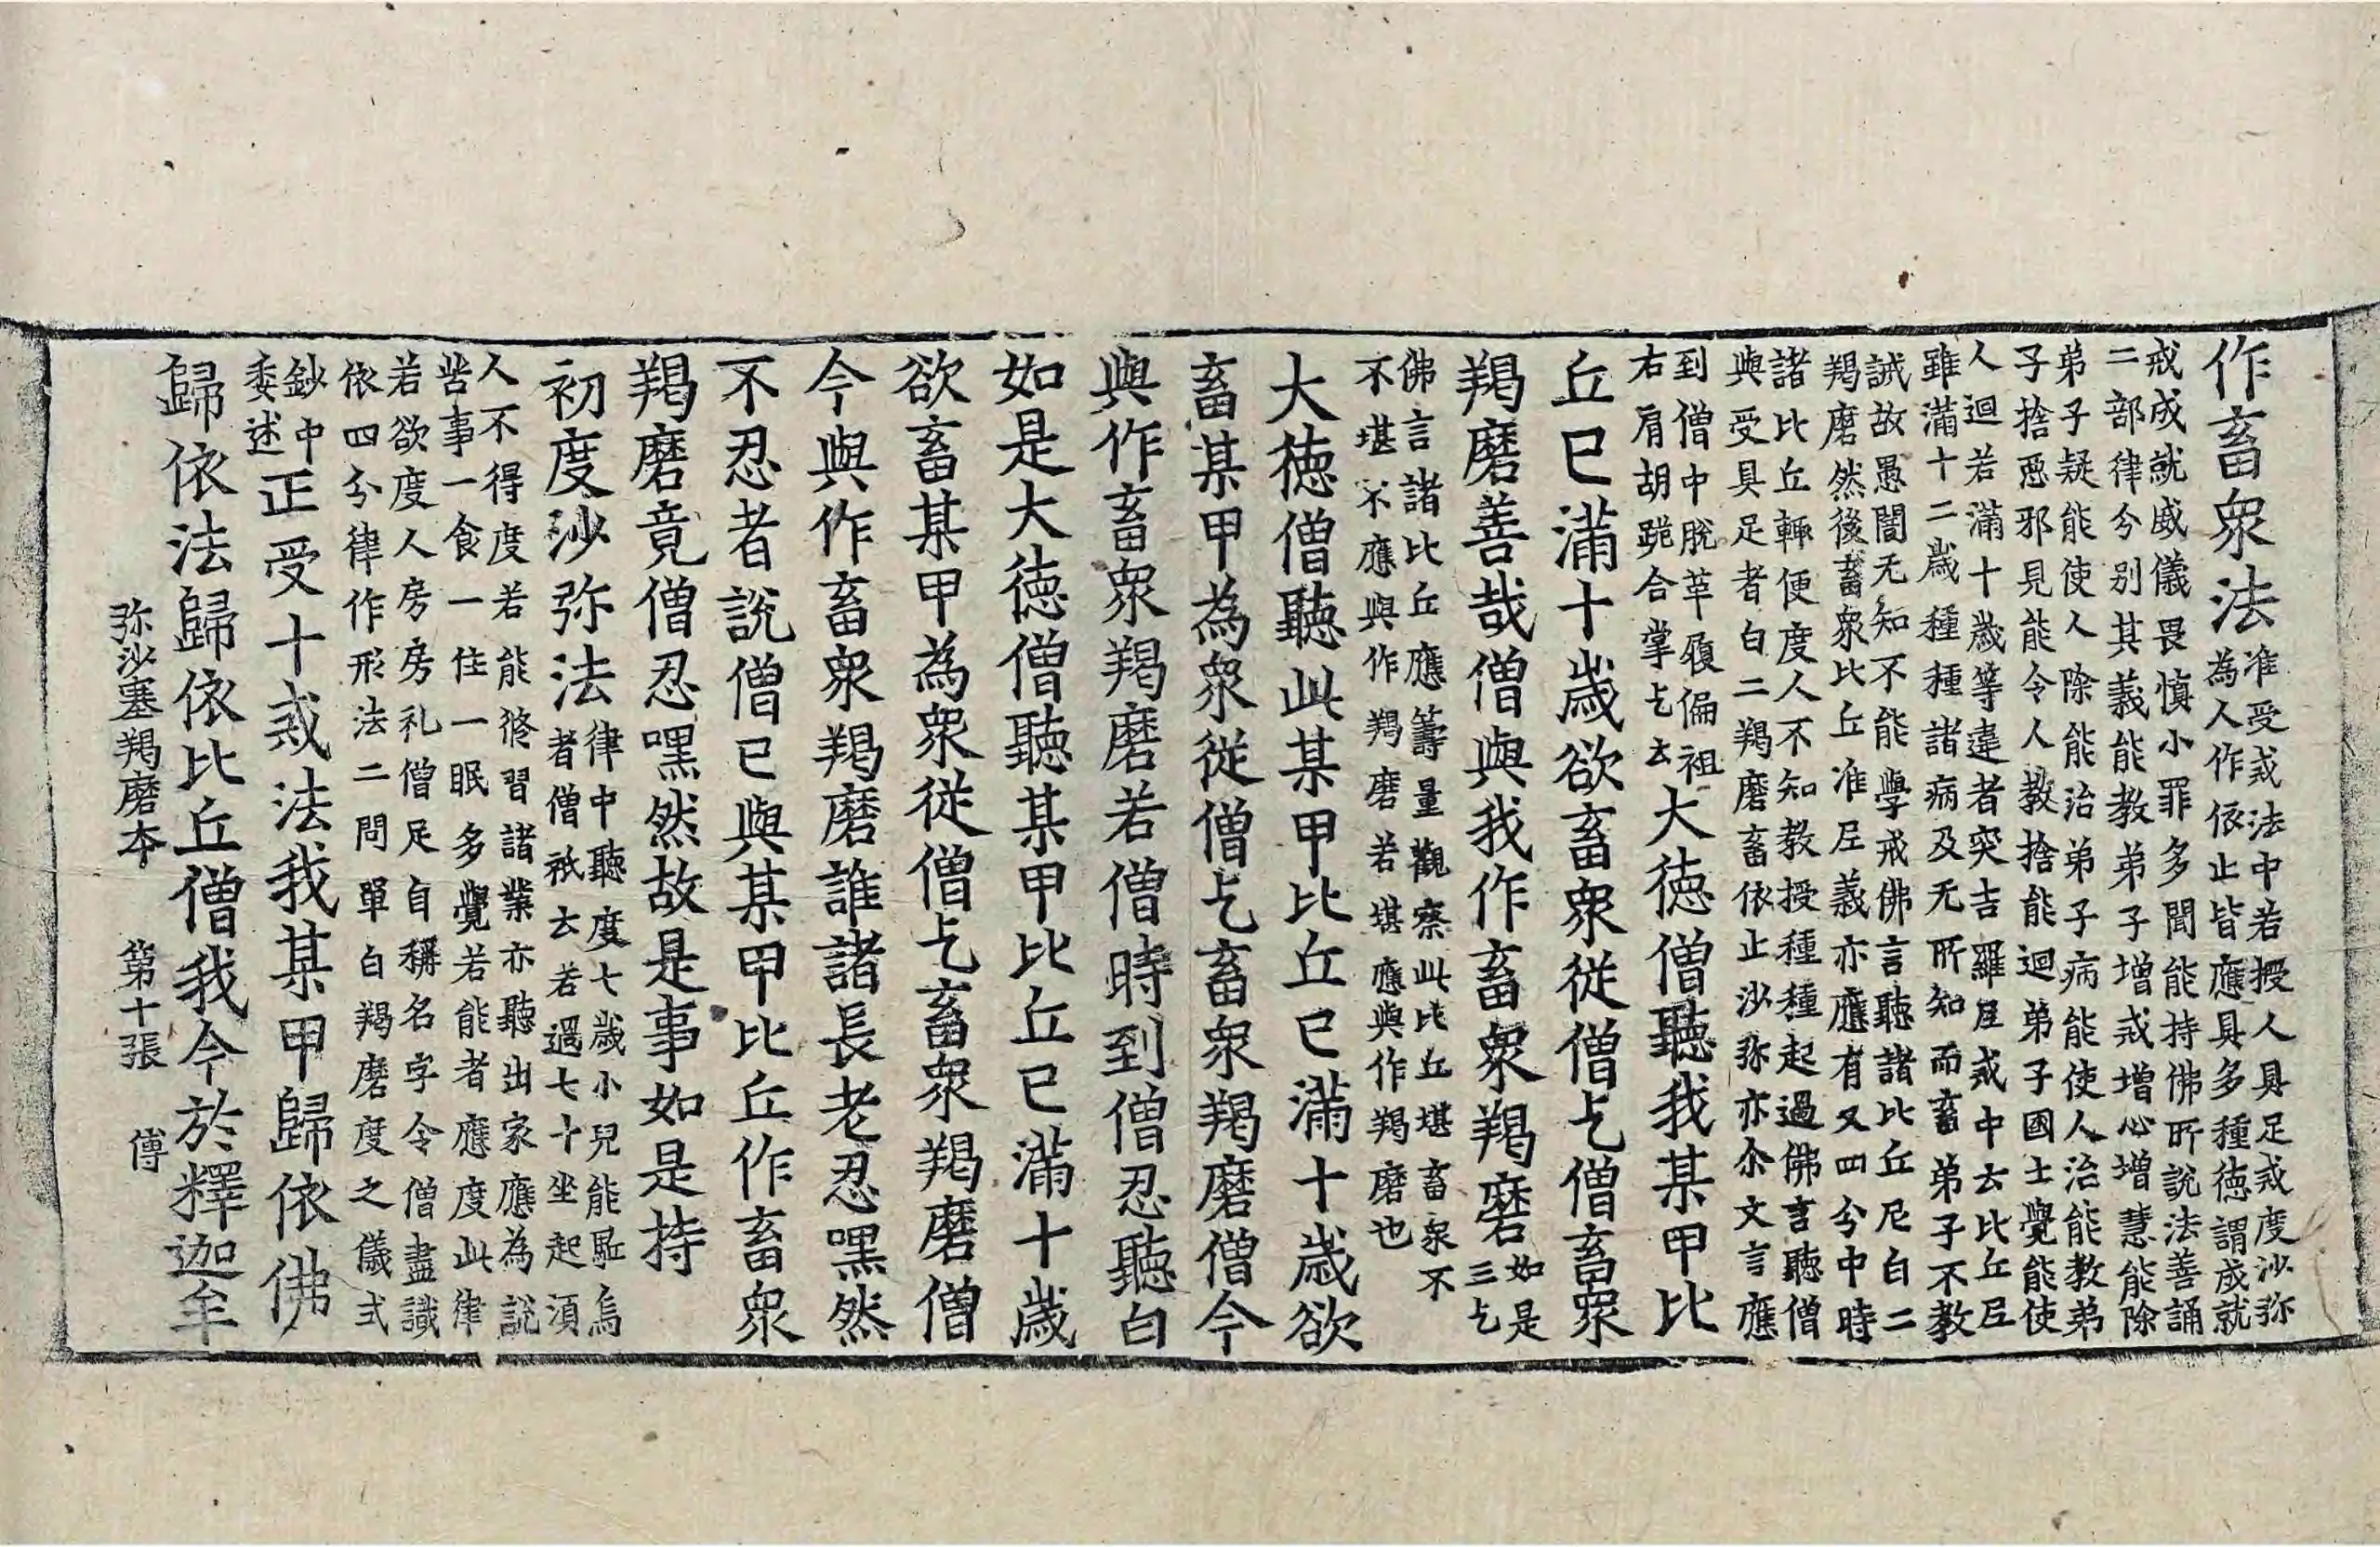 作畜衆法准受戒法中若授人具足戒度沙弥
為人作依止皆應具多種徳謂成就
戒成就威儀畏慎小罪多聞能持佛所說法善誦
二部律兮別其義能教弟子增戒增心增慧能除
弟子疑能使人除能治弟子病能使人治能教弟
子捨惡邪見能令人教捨能迴弟子國土覺能使
人迴若滿十歲等違者突吉羅𡰱戒中去比丘𡰱
雖滿十二歲種種諸病及无所知而畜弟子不教
誡故愚闇无知不能學戒佛言聽諸比丘尼白二
羯磨然後畜衆比丘准𡰱義亦應有又四兮中時
諸比丘輙便度人不知教授種種起過佛言聽僧
與受具足者白二羯磨畜依止沙弥亦尒文言應
到僧中脫革屣偏袒
右肩胡跪合掌乞去大徳僧聽我某甲比
丘已滿十歲欲畜衆從僧乞僧畜衆
羯磨善哉僧與我作畜衆羯磨如是
三乞
佛言諸比丘應籌量觀察此比丘堪畜衆不
不堪不應與作羯磨若堪應與作羯磨也
大徳僧聽此某甲比丘已滿十歲欲
畜某甲為衆從僧乞畜衆羯磨僧今
與作畜衆羯磨若僧時到僧忍聽白
如是大徳僧聽某甲比丘已滿十歲
欲畜某甲為衆從僧乞畜衆羯磨僧
今與作畜衆羯磨誰諸長老忍嘿然
不忍者說僧已與某甲比丘作畜衆
羯磨竟僧忍嘿然故是事如是持
初度沙弥法律中聽度七歲小兒能駈烏
者僧祇去若過七十坐起湏
人不得度若能修習諸業亦聽出家應為說
苦事一食一住一眠多覺若能者應度此律
若欲度人房房礼僧足自稱名字令僧盡識
依四兮律作形法二問單白羯磨度之儀式
鈔中
委述正受十戒法我某甲歸依佛
歸依法歸依比丘僧我今於釋迦牟
弥沙塞羯磨本 第十張 傅